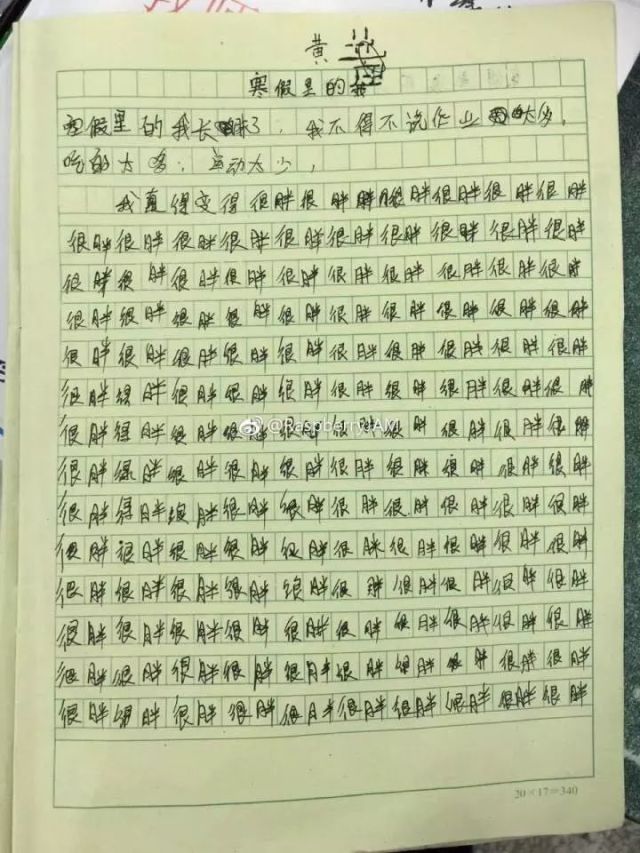 黄
寒假里的我
寒假里的我长胖了,我不得不说作业太多,
吃的太多,运动太少,
我真得变得很胖很胖胖很胖很胖很胖很胖
很胖很胖很胖很胖很胖很胖很胖很胖很胖很胖
很胖很胖很胖很胖很胖很胖很胖很胖很胖很胖
很胖很胖很胖很胖很胖很胖很胖很胖很胖很胖
很胖很胖很胖很胖很胖很胖很胖很胖很胖很胖
很胖很胖很胖很胖很胖很胖很胖很胖很胖很胖
很胖很胖很胖很胖很胖很胖很胖很胖很胖很胖
很胖很胖很胖很胖很胖很胖很胖很胖很胖很胖
很胖很胖很胖很胖很胖很胖很胖很胖很胖很胖
很胖很胖很胖很胖很胖很胖很胖很胖很胖很胖
很胖很胖很胖很胖很胖很胖很胖很胖很胖很胖
很胖很胖很胖很胖很胖很胖很胖很胖很胖很胖
很胖很胖很胖很胖很胖很胖很胖很胖很胖很胖
很胖很胖很胖很胖很胖很胖很胖很胖很胖很胖
20×17=340